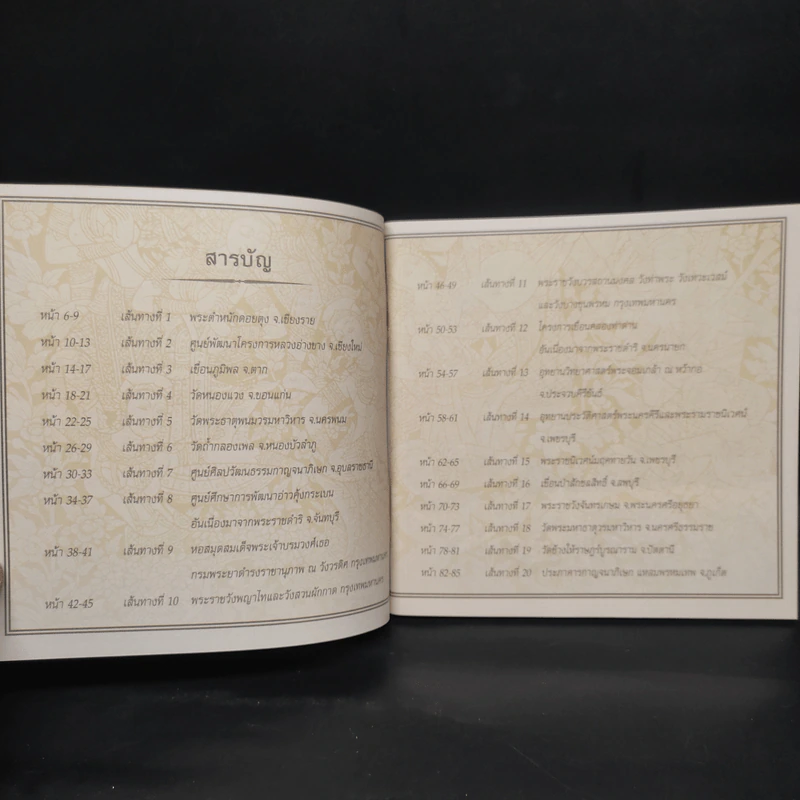 สารบัญ
หน้า 6-9 เส้นทางที่ 1 พระตำหนักดอยตุง จ.เชียงราย
หน้า 10-13 เส้นทางที่ 2 ศูนย์พัฒนาโครงการหลวงอ่างขาง จ.เชียงใหม่
หน้า 14-17 เส้นทางที่ 3 เขื่อนภูมิพล จ.ตาก
หน้า 18-21 เส้นทางที่ 4 วัดหนองแวง จ.ขอนแก่น
หน้า 22-25 เส้นทางที่ 5 วัดพระธาตุพนมวรมหาวิหาร จ.นครพนม
หน้า 26-29 เส้นทางที่ 6 วัดถ้ำกลองเพล จ.หนองบัวลำภู
หน้า 30-33 เส้นทางที่ 7 ศูนย์ศิลปวัฒนธรรมกาญจนาภิเษก จ.อุบลราชธานี
หน้า 34-37 เส้นทางที่ 8 ศูนย์ศึกษาการพัฒนาอ่าวคุ้งกระเบน
อันเนื่องมาจากพระราชดำริ จ.จันทบุรี
หน้า 38-41 เส้นทางที่ 9 หอสมุดสมเด็จพระเจ้าบรมวงศ์เธอ
กรมพระยาดำรงราชานุภาพ ณ วังวรดิศ กรุงเทพมหานคร
หน้า 42-45 เส้นทางที่ 10 พระราชวังพญาไทและวังสวนผักกาด กรุงเทพมหานคร
หน้า 46-49 เส้นทางที่ 11 พระราชวังบวรสถานมงคล วังท่าพระ วังเทวะเวสม์
และวังบางขุนพรหม กรุงเทพมหานคร
หน้า 50-53 เส้นทางที่ 12 โครงการเขื่อนคลองท่าด่าน
อันเนื่องมาจากพระราชดำริ จ.นครนายก
หน้า 54-57 เส้นทางที่ 13 อุทยานวิทยาศาสตร์พระจอมเกล้า ณ หว้ากอ
จ.ประจวบคีรีขันธ์
หน้า 58-61 เส้นทางที่ 14 อุทยานประวัติศาสตร์พระนครคีรีและพระรามราชนิเวศน์
จ.เพชรบุรี
หน้า 62-65 เส้นทางที่ 15 พระราชนิเวศน์มฤคทายวัน จ.เพชรบุรี
หน้า 66-69 เส้นทางที่ 16 เขื่อนป่าสักชลสิทธิ์ จ.ลพบุรี
หน้า 70-73 เส้นทางที่ 17 พระราชวังจันทรเกษม จ.พระนครศรีอยุธยา
หน้า 74-77 เส้นทางที่ 18 วัดพระมหาธาตุวรมหาวิหาร จ.นครศรีธรรมราช
หน้า 78-81 เส้นทางที่ 19 วัดช้างให้ราษฎร์บูรณาราม จ.ปัตตานี
หน้า 82-85 เส้นทางที่ 20 ประภาคารกาญจนาภิเษก แหลมพรหมเทพ จ.ภูเก็ต